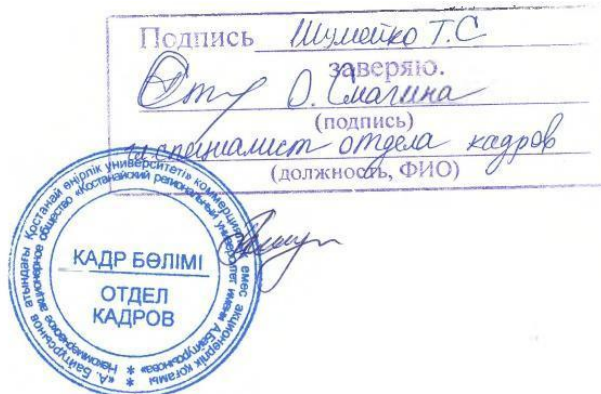 Подпись Шумейко Т.С
заверяю.
О. Смагина
(подпись)
специалист отдела кадров
(должность, ФИО)
«А. Байтұрсынов атындағы Қостанай өңірлік университеті» коммерциялық емес акционерлік қоғамы
Некоммерческое акционерное общество «Костанайский региональный университет имени А.Байтурсынова»
КАДР БӨЛІМІ
ОТДЕЛ
КАДРОВ